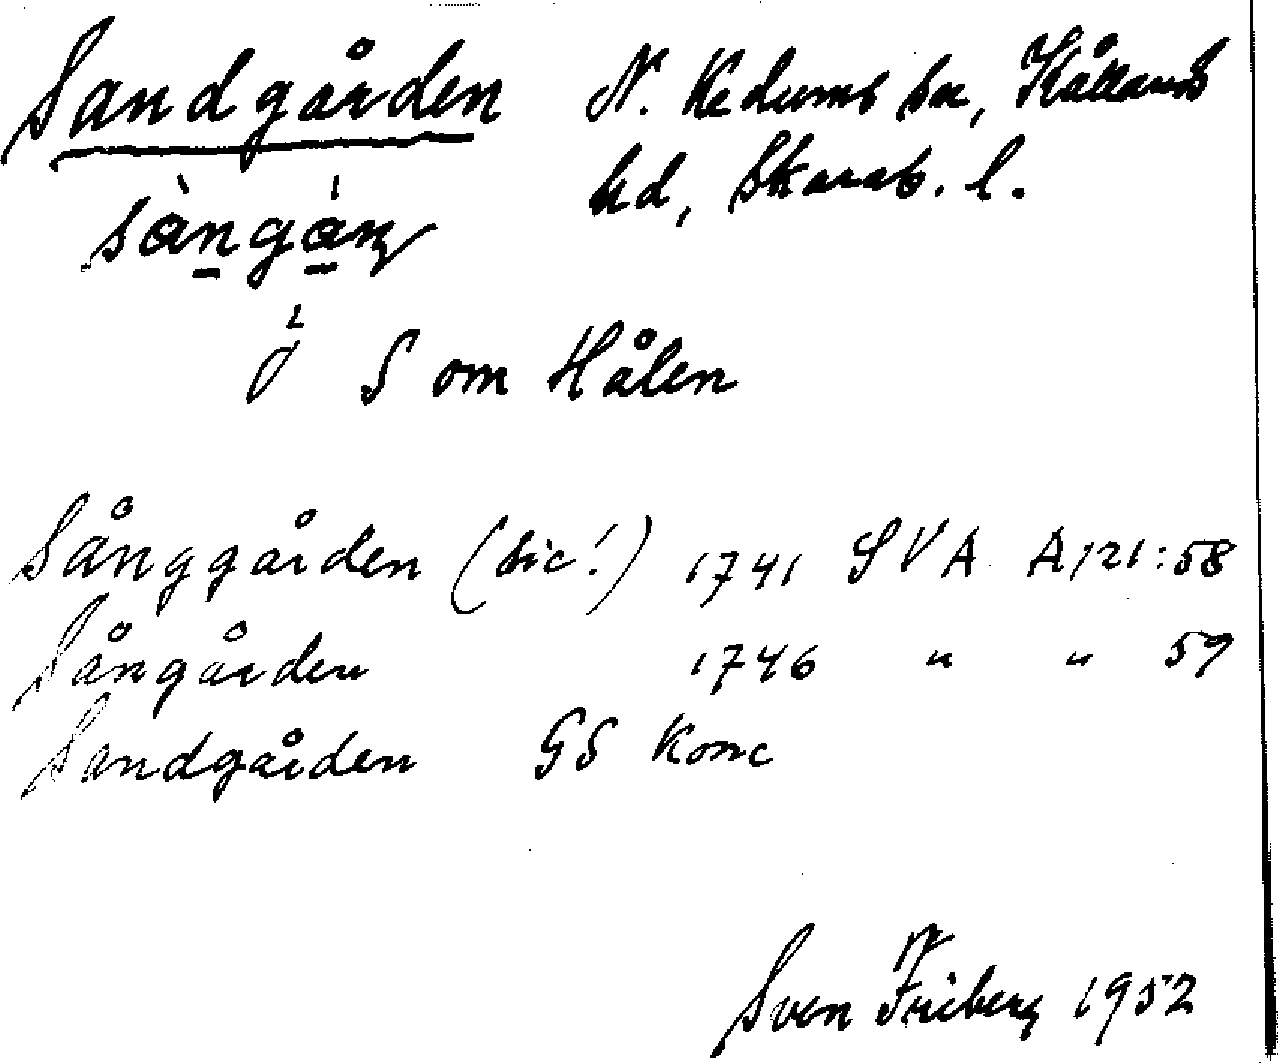 Sandgården N. Kedums sn, Kållands
hd, Skarab. l.
sàngán
S om Hålen
Sånggården (sic!) 1741 SVA A121:58
Sångården 1746 " " 59
Sandgården GS Konc
Sven Friberg 1952